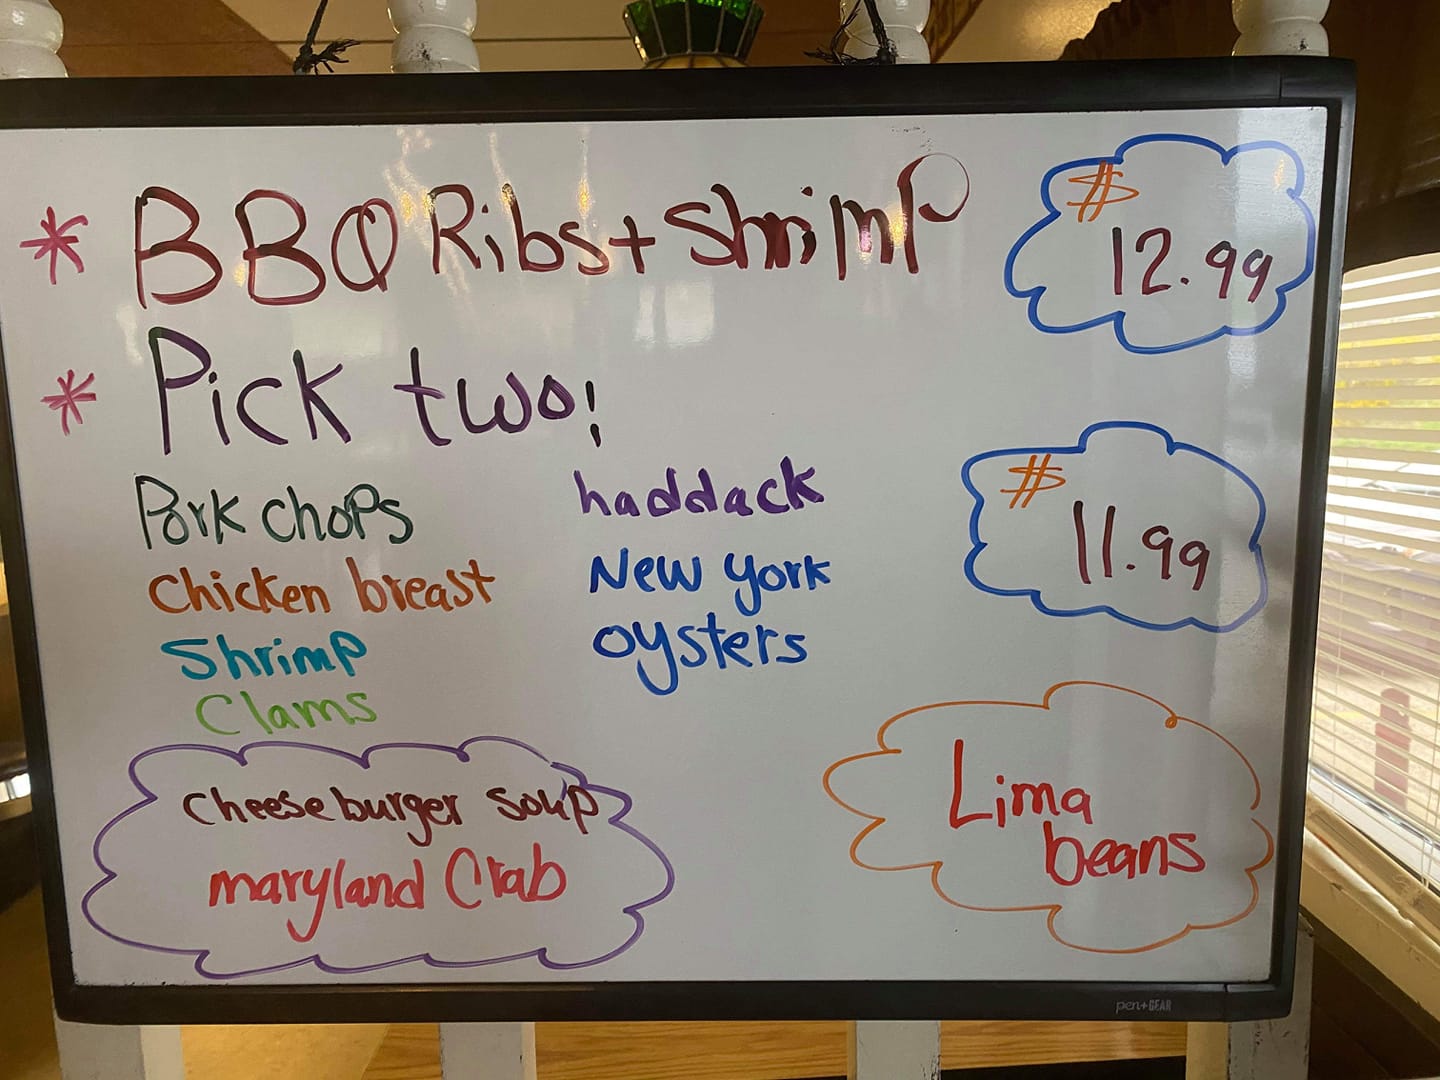 * BBQ Ribs + Shrimp
$ 12.99
* Pick two!
$ 11.99
Pork chops
Chicken breast
Shrimp
Clams
haddack
New york
oysters
Cheeseburger soup
maryland Crab
Lima
beans
pen+GEAR